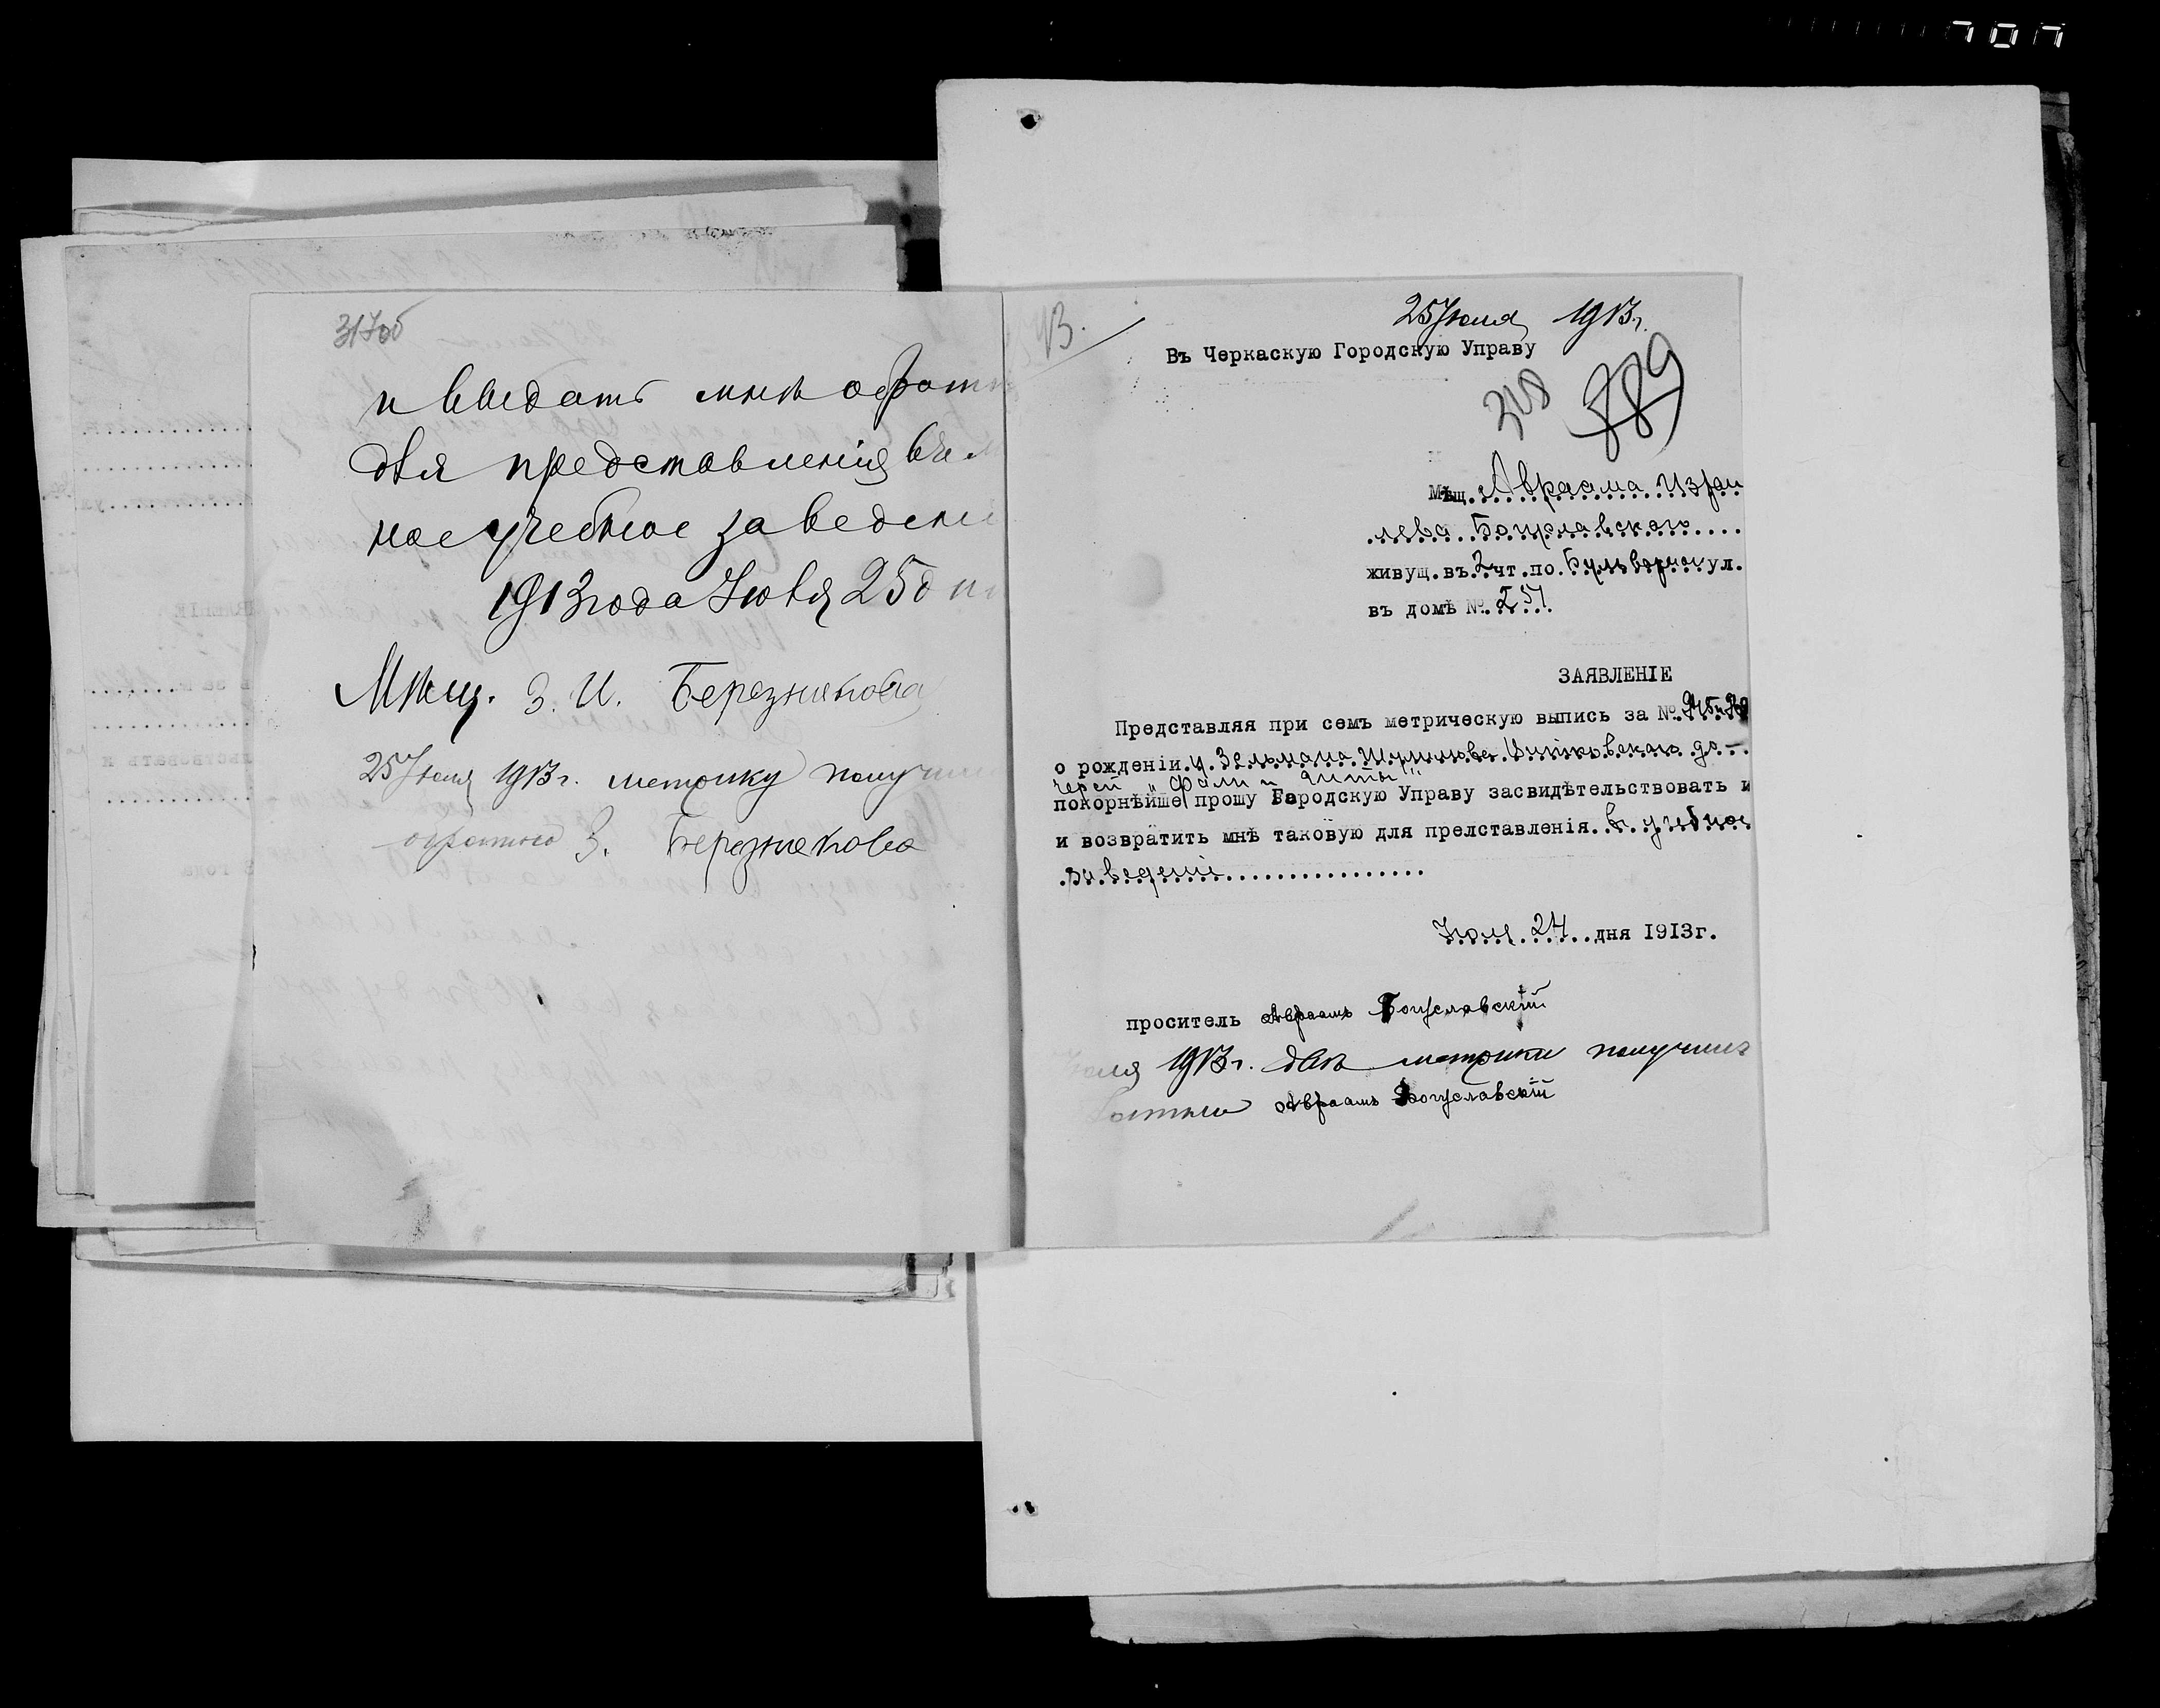 317об
и выдать мнѣ обратн
для представленія въ
ное учебное заведені
1913 года Іюля 25 д
Мѣщ. З. И. Березнякова
25 Іюля 1913 г. метрику получи
обратно З. Березнякова
25 Іюля 1913 г.
Въ Черкаскую Городскую Управу
318 889
Мѣщ. Авраама Израи
лева Богуславскаго
живущ. въ 2 чт. по Бульварной ул.
въ домѣ №
ЗАЯВЛЕНІЕ
Представляя при семъ метрическую выпись за №
о рожденіи у Зельмана Шмулева Витковскаго до-
черей "Фани и Читы"
покорнѣйше прошу Городскую Управу засвидѣтельствовать и
и возвратить мнѣ таковую для прелставленія въ учебное
заведеніе
Іюля 24 дня 1913г.
проситель Авраамъ Богуславскій
Іюля 1913 г. двѣ метрики получилъ
обратно Авраамъ Богуславскій